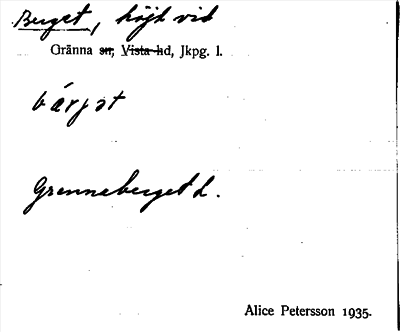 Berget, höjt vid
Gränna sn, Vista hd, Jkpg. l.
bárjət
Grennaberget L.
Alice Petersson 1935.